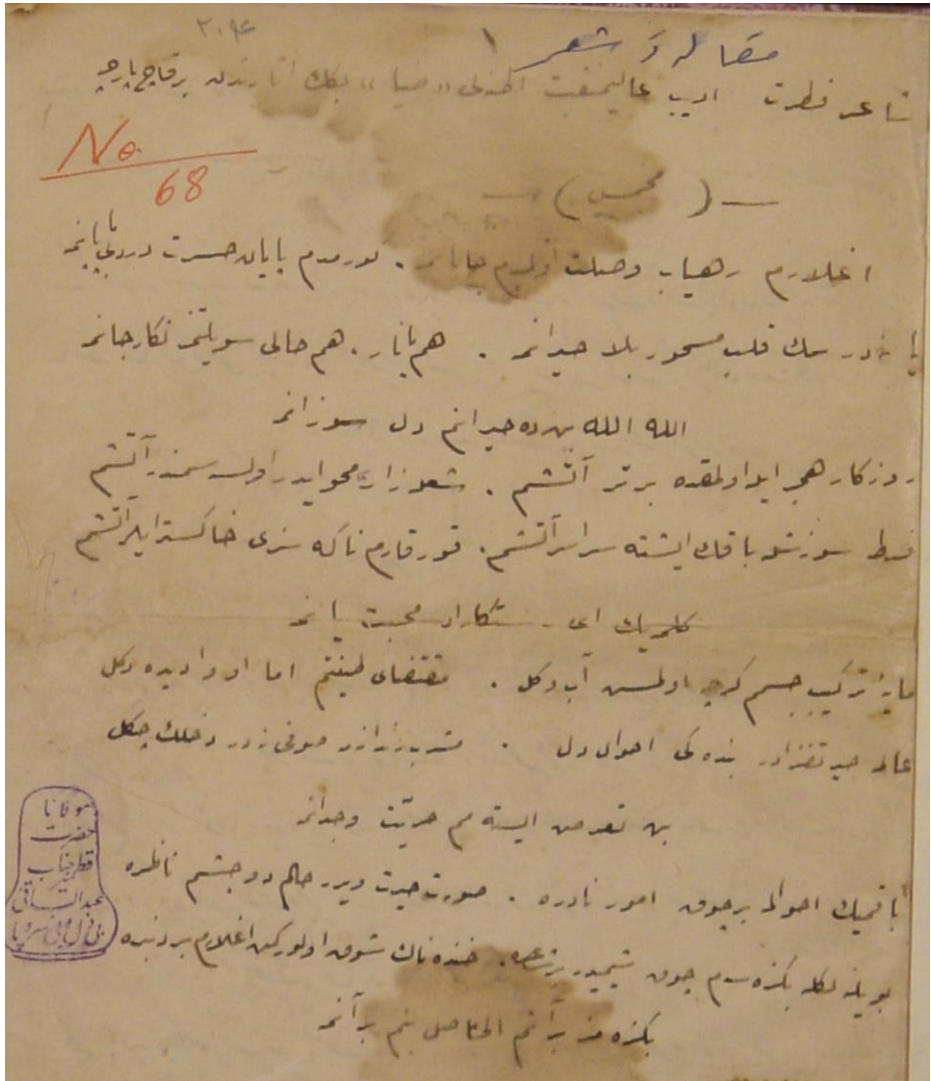 ٢٠٩٤
مقاله و شعر
١
شاعر فطرت ادیب عالیمنقبت افندی «ضیا» بكك آثارندن برقاچ پارچه
No. 68
— ( مخمس ) —
اغلارم رهیاب وصلت اولدم جانانمه . كورمدم پایان حسرت درد بی پایانمه
قلب مسحور بلا حیرانمه . هم یانار . هم حالی سویلتمز نكار جانمه
الله الله بن ده حیرانم دل سوزانمه
روزكار هجر ایله اولمقده برتر آتشم . شعله زار محو ایدر اولسه سمندر آتشم
فرط سوزشله باقك ایشته سراسر آتشم . قورقارم ناكه سزی خاكستر ایلر آتشم
كلمیك ای ستمكاران محبت یانمه
مایهٔ تركیب جسمم كرچه اولمش آب و كل . مقتضای طینتم اما او وادیده دكل
عالم حیرتفزادر بنده كی احوال دل . مشرب رندانه در صوفی دخلك چكل
بن تعرض ایسته مم حریت وجدانمه
باقمیك احوالمه برچوق امور نادره . صورت حیرت ویرر حالم دو چشم ناظره
بویله كله بكزه سدم چوق . خنده ناك شوق اولوركن اغلارم بردنبره
بكزه مز بر آنم الحاصل بنم بر آنمه
مولانا
حضرت
قطب جناب
عبدالباقی